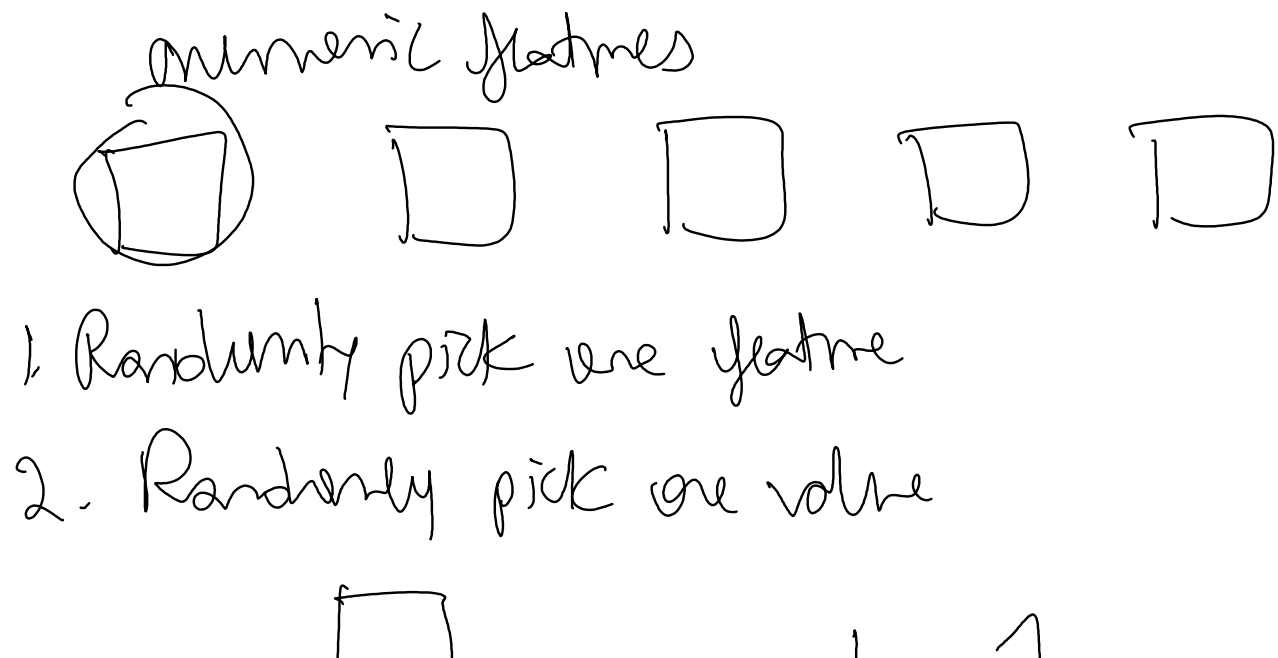 numeric features
1. Randomly pick one feature
2. Randomly pick one value